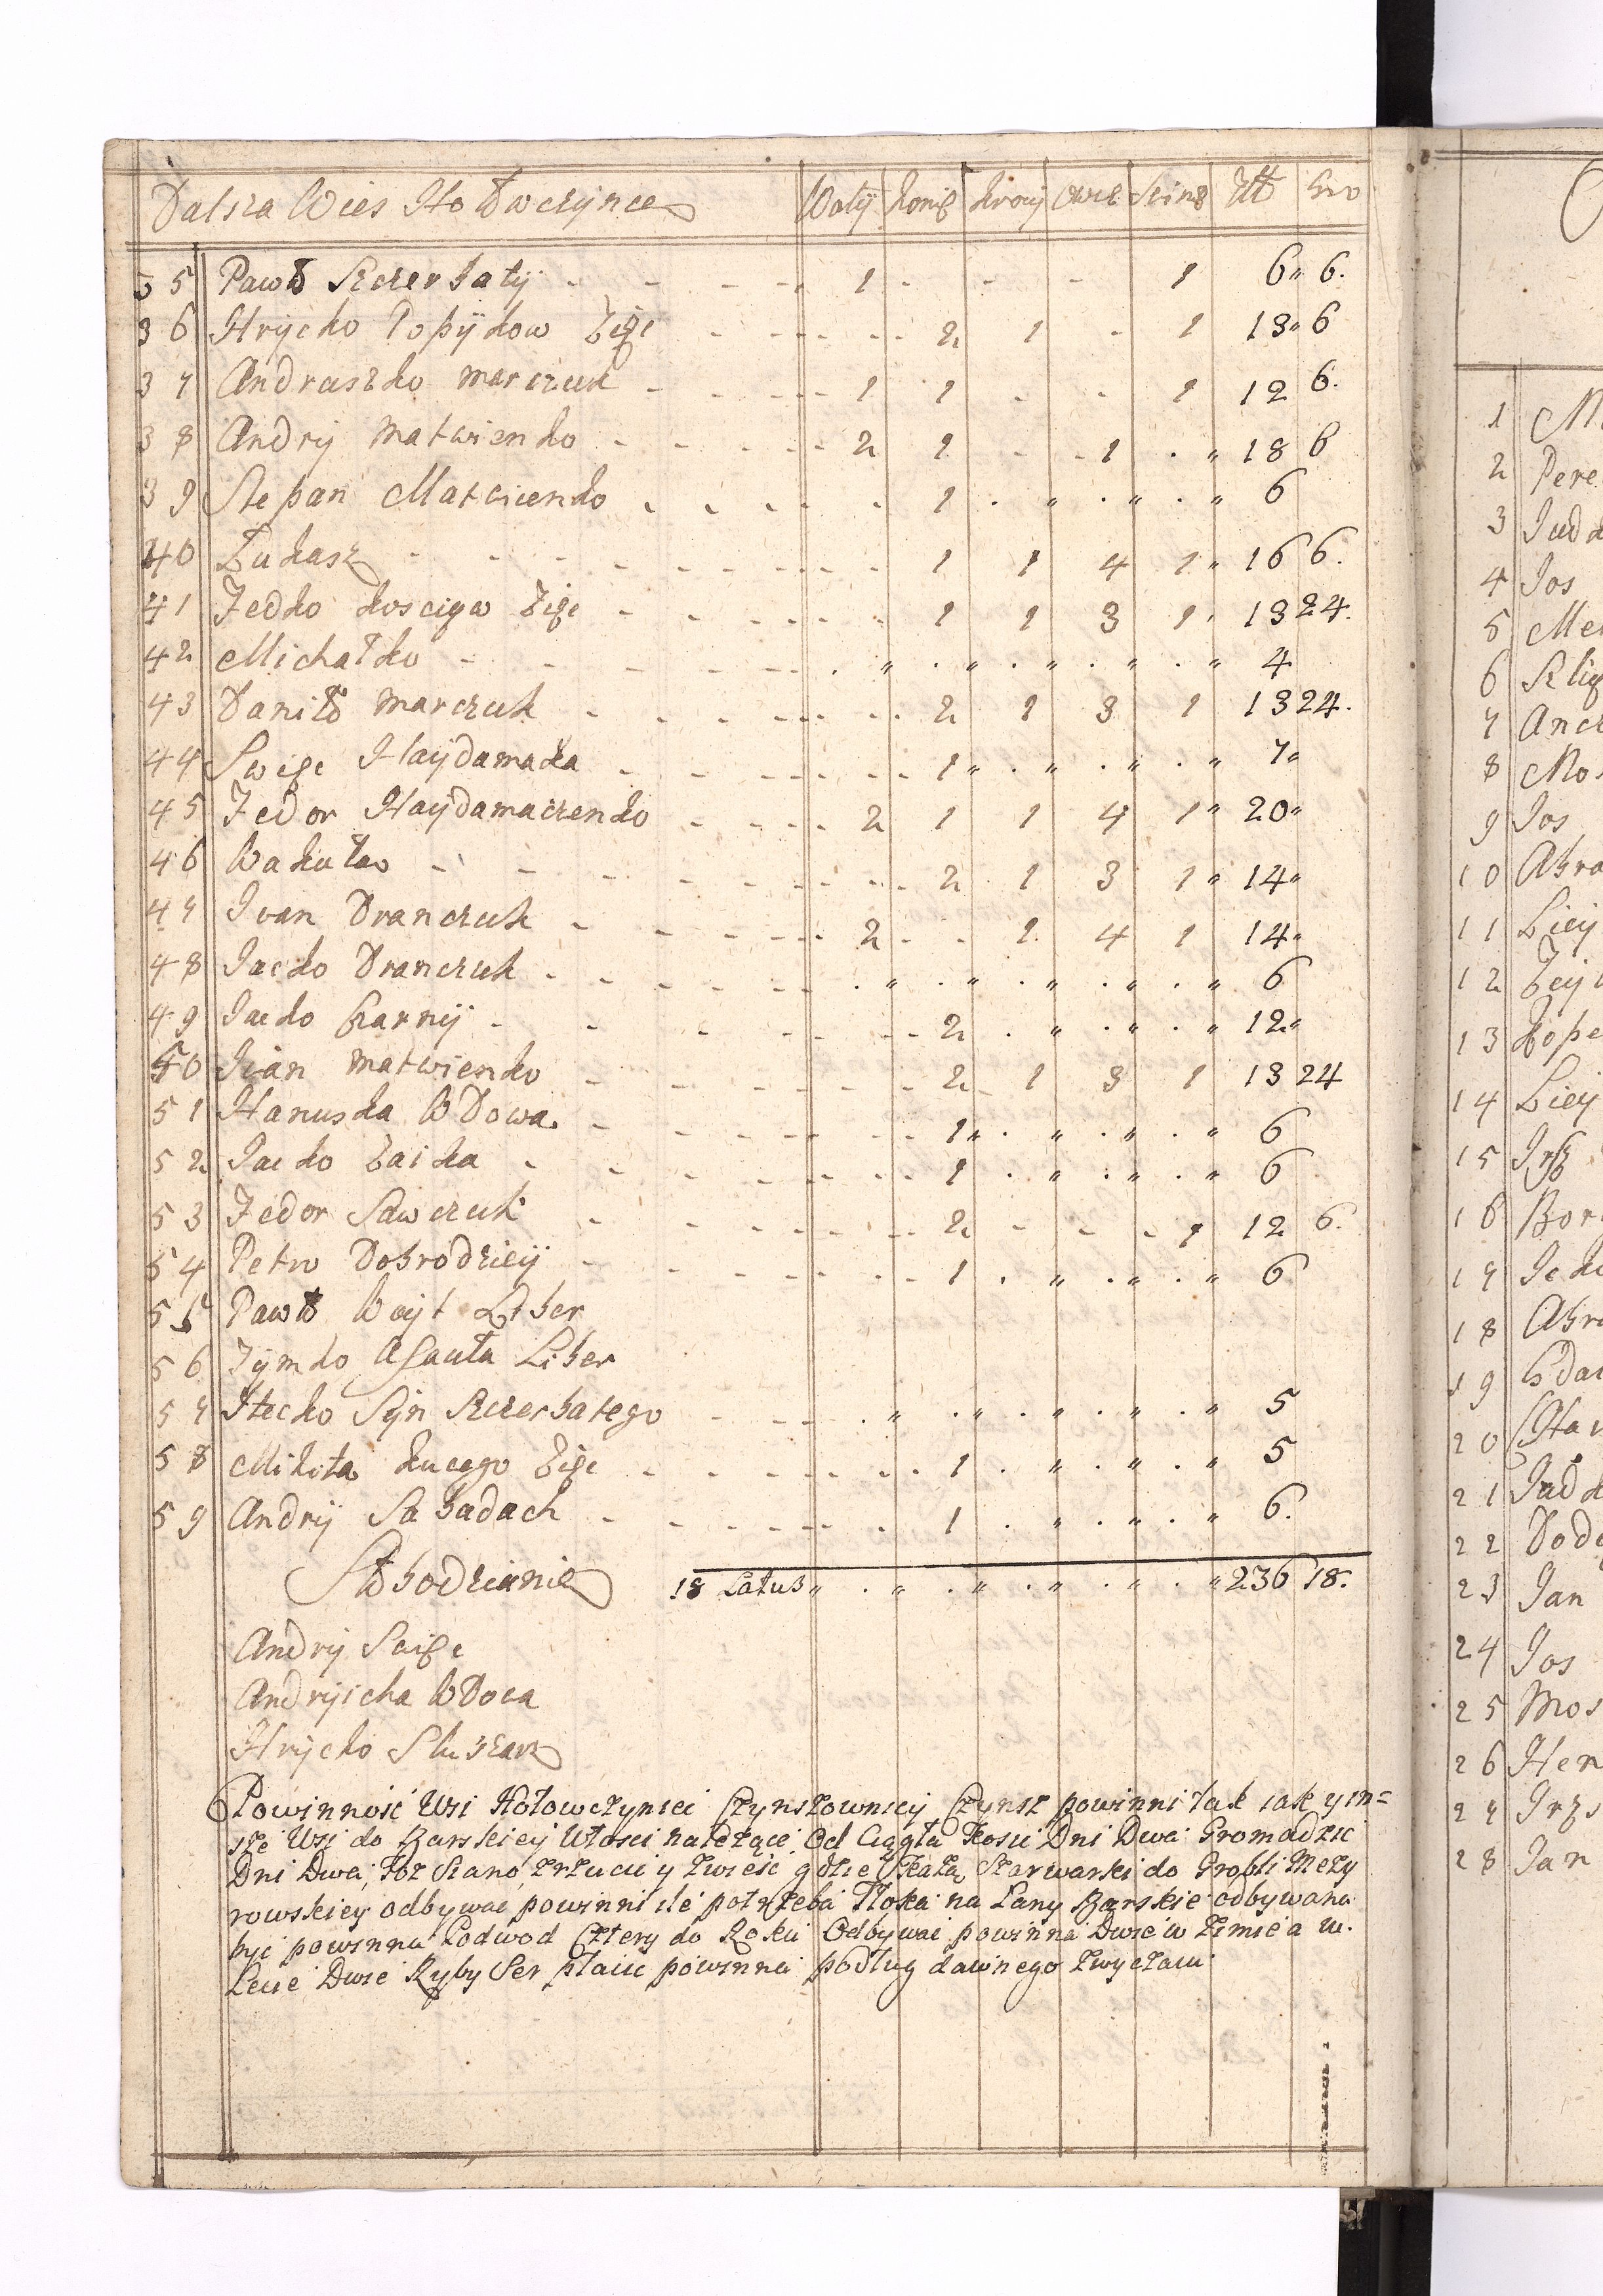 Dalsza Wies Hołowczynce Wołÿ konie krowÿ owce Swine Złł Gro
35 Pawło Szczerbatÿ 1 - - - 1 6 6.
36 Hrÿcko Popÿkow Zięc 2 1 - 1 13 6
37 Andruszko Marczuk 1 1 - - 1 12 6.
38 Andrij Matwienko 2 1 - 1 18 6
39 Stepan Matwienko 1 6
40 Łukasz 1 1 4 1 16 6.
41 Fedko Zięc 1 1 3 1 13 24.
42 Michałko 4
43 Daniło Marczuk 2 1 3 1 13 24.
44 Swięc Haÿdamaka 1 7
45 Fedor Haÿdamaczenko 2 1 1 4 1 20
46 Wakuła 2 1 3 1 14
47 Ivan Dranczuk 2 - - 1 4 1 14
48 Jacko Dranczuk 6
49 Jacko Czarnÿ 2 12
50 Iwan Matwienko 2 1 3 1 13 24
51 Hanuska Wdowa 1 6
52 Jacko Zaika 1 6
53 Fedor Sawczuk 2 - - - 1 12 6.
54 Petro Dobrodzieÿ 1 6
55 Pawło Woÿt Liber
56 Tÿmko Asauła Liber
57 Stecko Sÿn Szczerbatego 5
58 Mikita Kucego Zięc 1 5
59 Andrÿ Sahadach 1 6.
Słobodzianie 18 Latus 236 18.
Andrij Swięc
Andrÿicha Wdowa
Hrÿcko Slusarz
Powinność Wsi Hołowczyniec Czynszownicy Czynsz powinni tak iak y in=
sze Wsi do Barskiey Włosci należące Od Ciągła Kosić Dni Dwa Gromadzić
Dni Dwa, Toż Siano zrzucić y zwieść gdzie Skażą Szarwarki do Grobli Mezy
rowskiey odbywac powinni ile potrzeba Tłoka na Łany Barskie odbywana
być powinna Podwod Cztery do Roku Odbywać powinna Dwie w Zimie a w.
Lecie Dwie Ryby Ser płacić powinni podług dawnego zwyczaiu
1 M
2 Pere
3 Judk
4 Jos
5 Mei
6
7 Ancz
8 Mos
9 Jos
10 Abra
11 Leiy
12
13
14 Leiy
15
16 Bor
17
18 Abra
19
20
21 Judk
22
23 Jan
24 Jos
25 Mos
26 Her
27
28 Jan